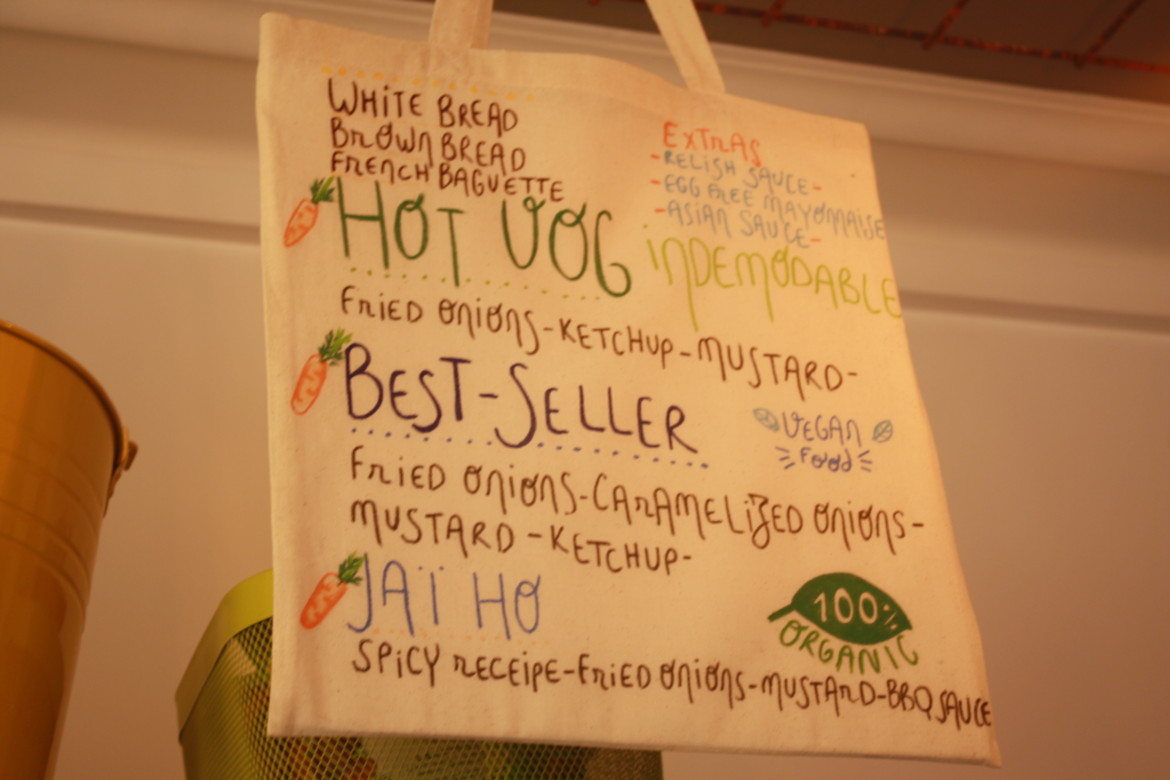 WHITE BREAD
BROWN BREAD
FRENCH BAGUETTE
EXTRAS
-RELISH SAUCE-
-EGG FREE MAYONNAISE
-ASIAN SAUCE-
HOT VOG INDEMODABLE
FRIED ONIONS-KETCHUP-MUSTARD-
BEST-SELLER
VEGAN
FOOD
FRIED ONIONS-CARAMELIZED ONIONS-
MUSTARD-KETCHUP-
JAÏ HO
100%
ORGANIC
SPICY RECEIPE-FRIED ONIONS-MUSTARD-BBQ SAUCE